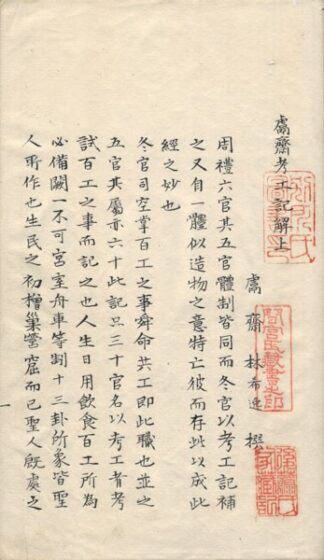 鬳齋考工記解上
鬳齋 林希逸 撰
周禮六官其五官體制皆同而冬官以考工記補
之又自一體似造物之意特亡彼而存此以成此
經之妙也
冬官司空掌百工之事舜命共工即此職也並之
五官其屬亦六十此記只三十官名以考工者考
試百工之事而記之也人生日用飲食百工所為
必備闕一不可宮室舟車等制十三卦所象皆聖
人所作也生民之初橧巢營窟而已聖人既處之